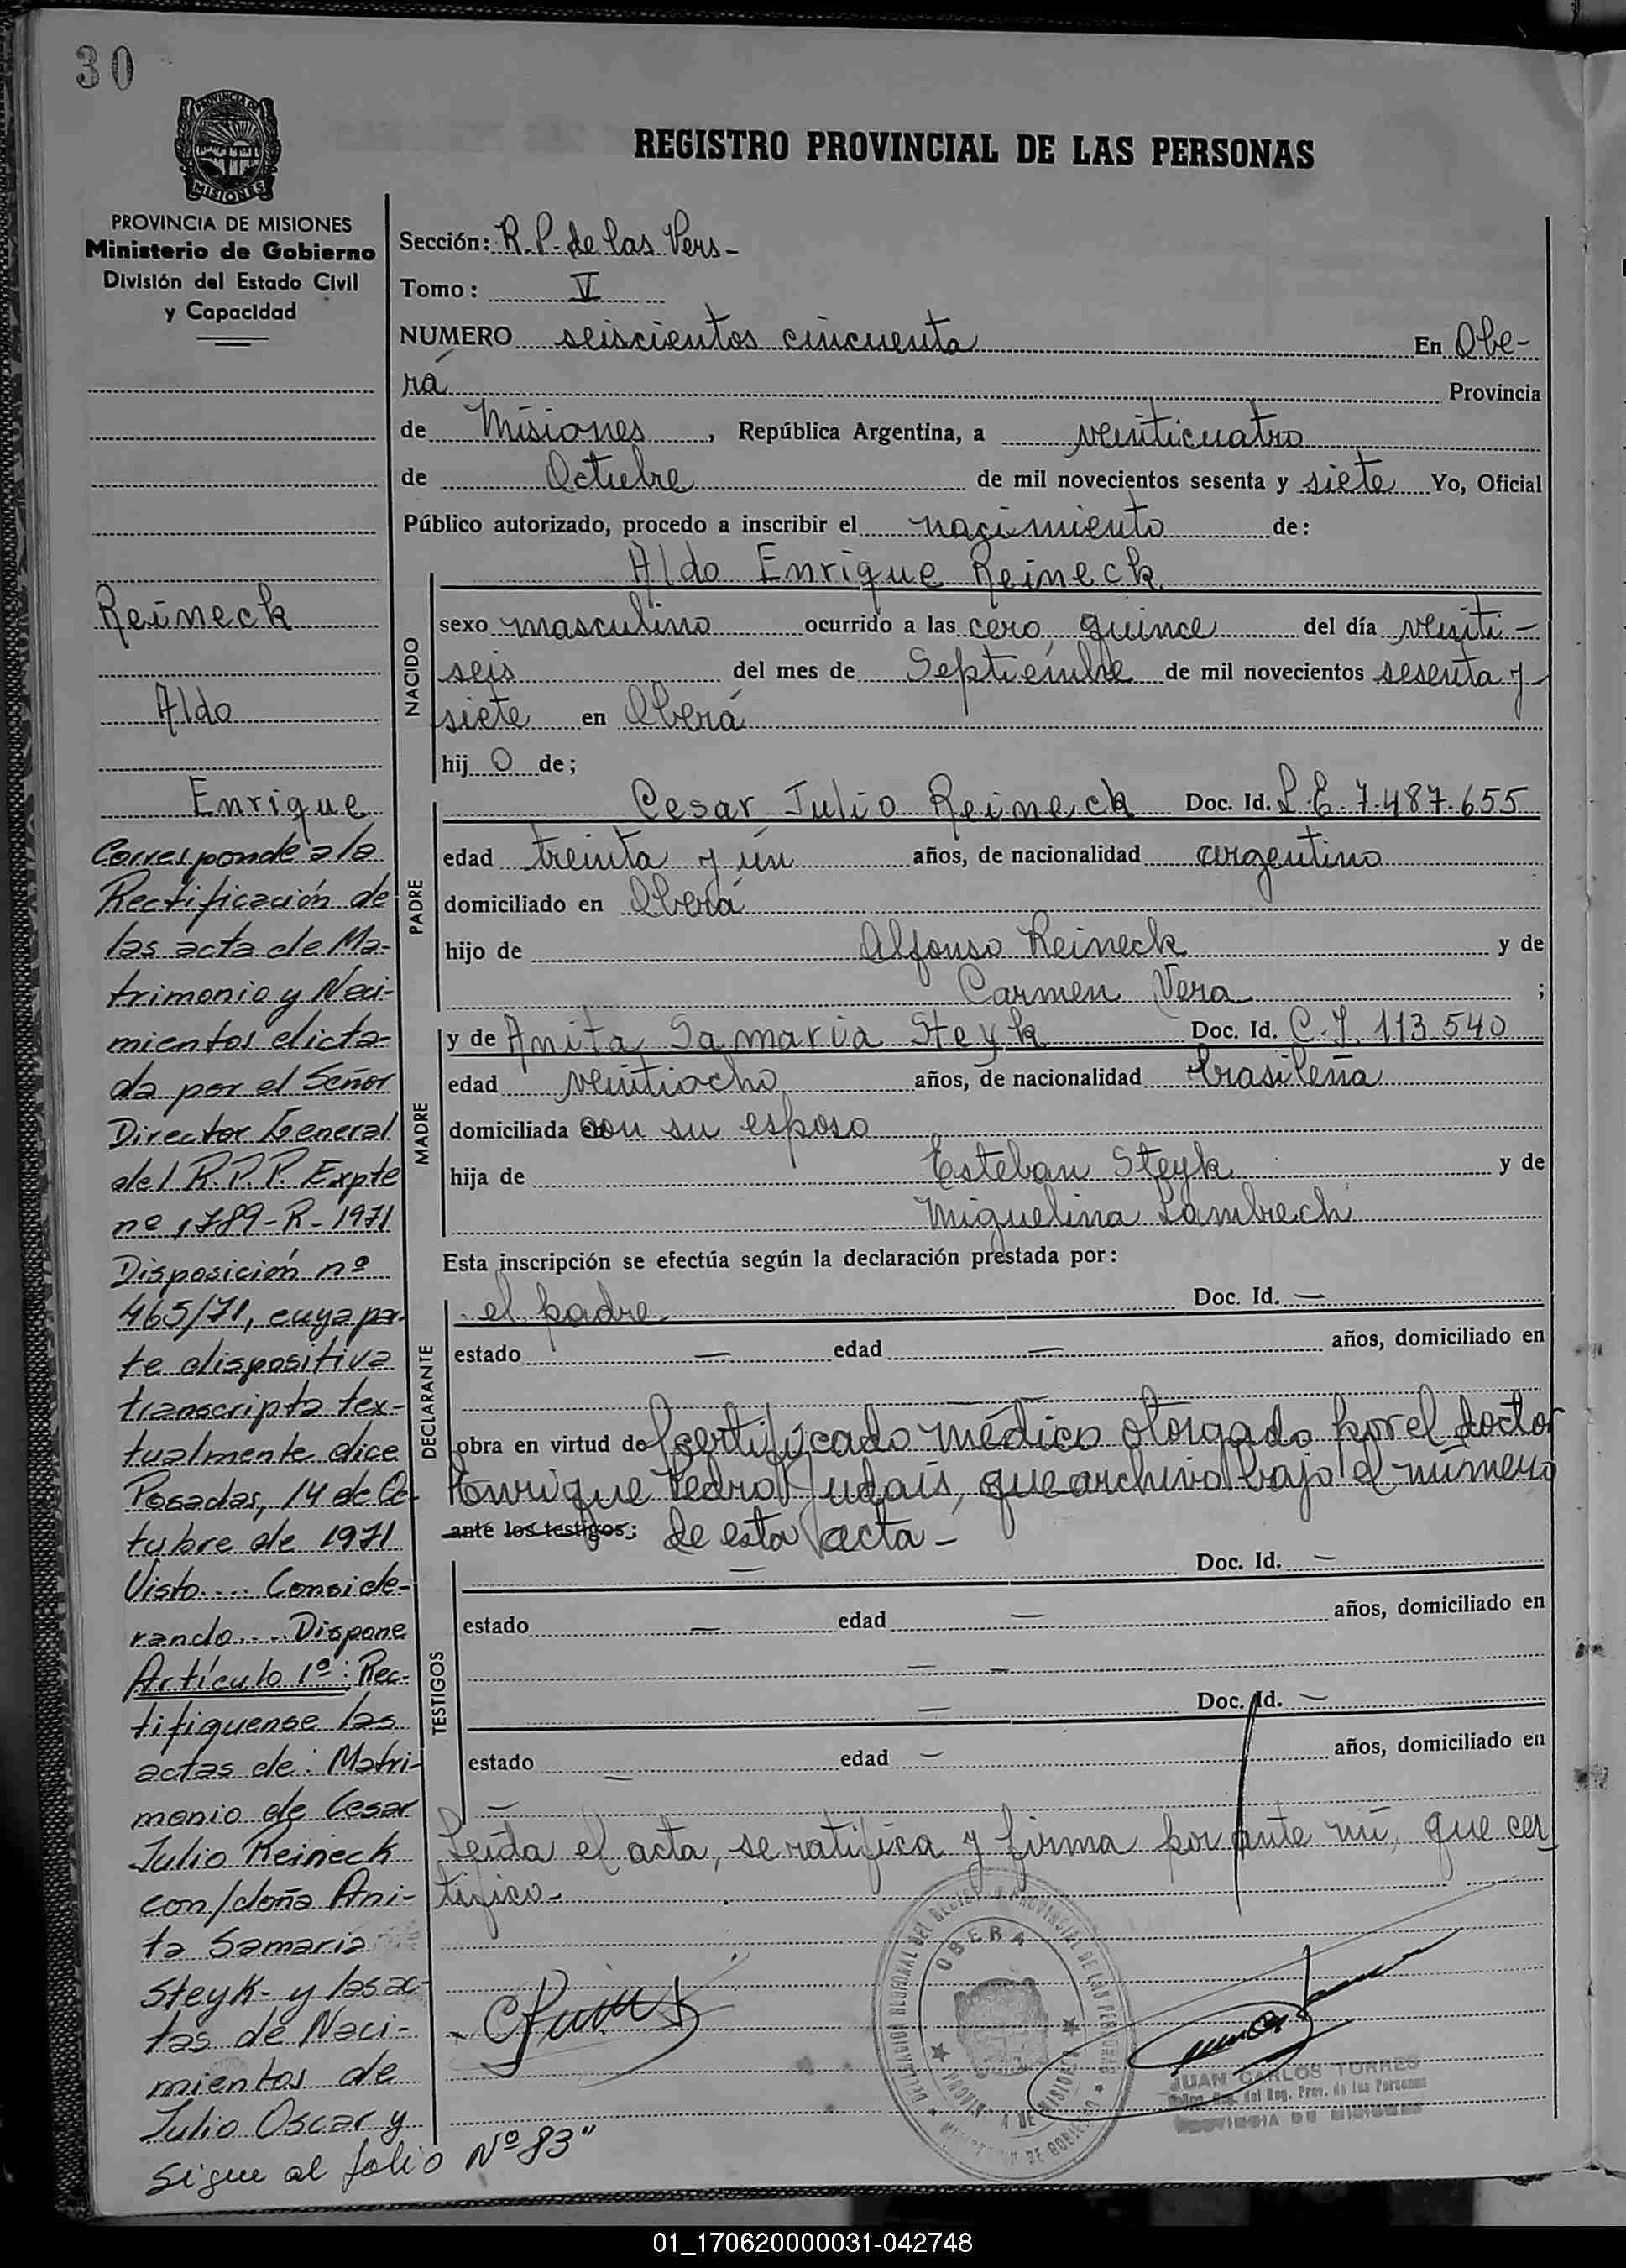 30
PROVINCIA DE
MISIONES
REGISTRO PROVINCIAL DE LAS PERSONAS
PROVINCIA DE MISIONES
Ministerio de Gobierno
División del Estado Civil
y Capacidad
Reineck
Aldo
Enrique
Corresponde a la
Rectificación de
las acta de Ma-
trimonio y Naci-
mientos dicta-
da por el Señor
Director General
del R.P.P. Expte
nº 1789-R-1971
Disposición nº
465/71, cuya par-
te dispositiva
transcripta tex-
tualmente dice
Posadas, 14 de Oc-
tubre de 1971
Visto.... Conside-
rando.... Dispone
Artículo 1º: Rec-
tifiquense las
actas de: Matri-
monio de Cesar
Julio Reineck
con/doña Ani-
ta Samaria
Steyk- y las ac-
tas de Naci-
mientos de
Julio Oscar y
Sigue al folio Nº 83"
Sección: R.P. de las Pers-
Tomo: V
NUMERO seiscientos cincuenta En Obe-
rá Provincia
de Misiones, República Argentina, a veinticuatro
de Octubre de mil novecientos sesenta y siete Yo, Oficial
Público autorizado, procedo a inscribir el nacimiento de:
Aldo Enrique Reineck
NACIDO
sexo masculino ocurrido a las cero quince del día veinti-
seis del mes de Septiembre de mil novecientos sesenta y
siete en Oberá
hijo de;
PADRE
Cesar Julio Reineck Doc. Id. L.E. 7.487.655
edad treinta y un años, de nacionalidad argentino
domiciliado en Oberá
hijo de Alfonso Reineck y de
Carmen Vera ;
MADRE
y de Anita Samaria Steyk Doc. Id. C.I. 113.540
edad veintiocho años, de nacionalidad brasileña
domiciliada en con su esposo
hija de Esteban Steyk y de
Miguelina Lambrech
Esta inscripción se efectúa según la declaración prestada por:
DECLARANTE
el padre Doc. Id. —
estado — edad — años, domiciliado en
—
obra en virtud de certificado médico otorgado por el doctor
Enrique Pedro Judais, que archivo bajo el número
ante los testigos: de esta acta -
TESTIGOS
— Doc. Id. —
estado — edad — años, domiciliado en
— —
— Doc. Id. —
estado — edad — años, domiciliado en
—
Leída el acta, se ratifica y firma por ante mí, que cer
tifico-
DELEGACION REGIONAL DEL REGISTRO PROVINCIAL DE LAS PERSONAS
OBERA
PROVINCIA DE MISIONES
MINISTERIO DE GOBIERNO
JUAN CARLOS TORRES
del Reg. Prov. de las Personas
PROVINCIA DE MISIONES
01_170620000031-042748